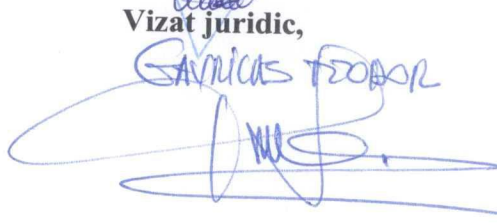 Vizat juridic,
GAVRICAS TEODOR